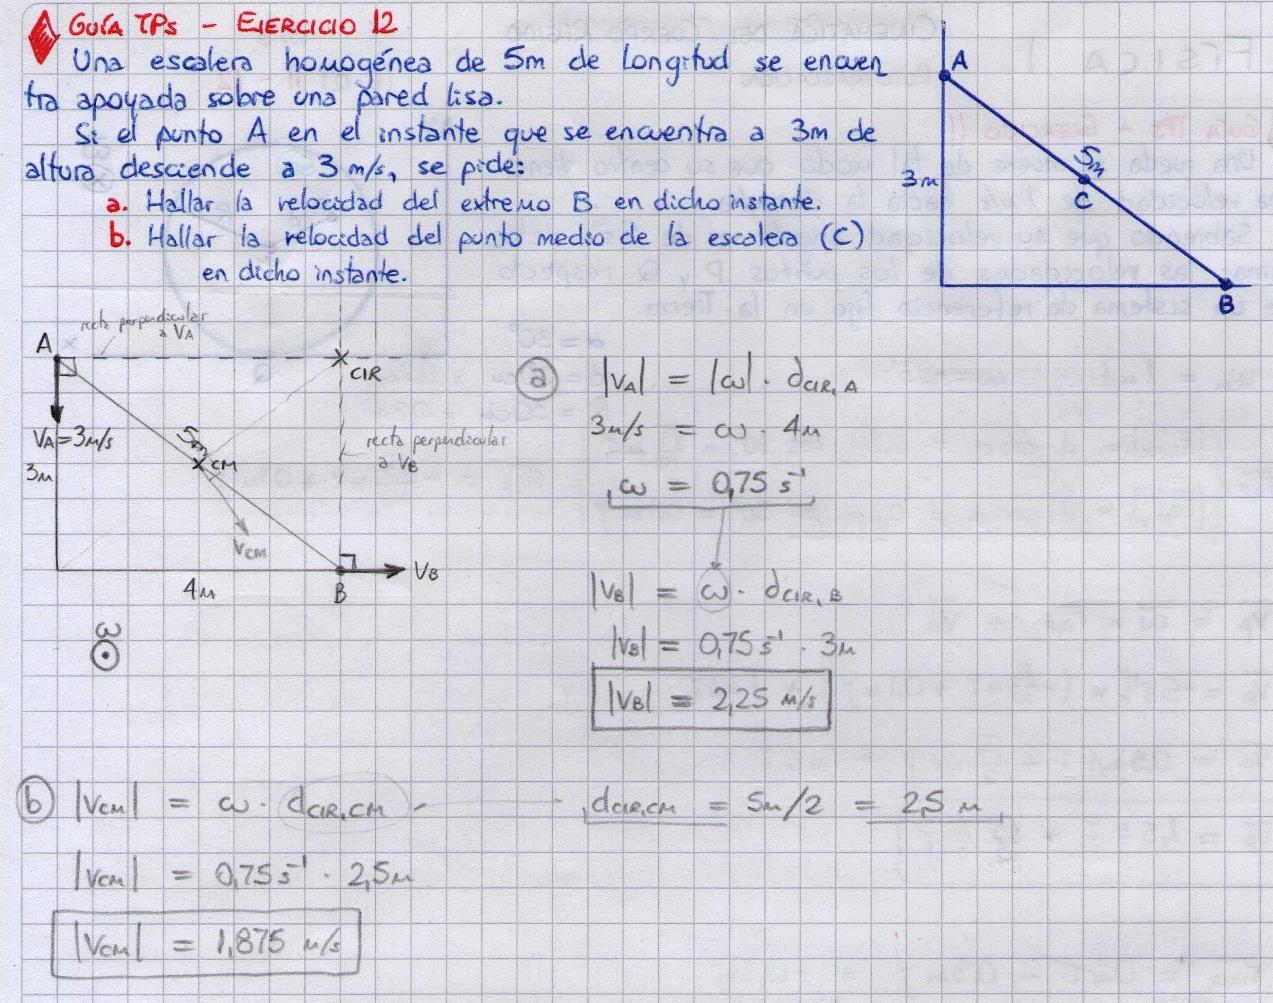 GUÍA TPs - EJERCICIO 12
Una escalera homogénea de 5m de longitud se encuen
tra apoyada sobre una pared lisa.
Si el punto A en el instante que se encuentra a 3m de
altura desciende a 3 m/s, se pide:
a. Hallar la velocidad del extremo B en dicho instante.
b. Hallar la velocidad del punto medio de la escalera (C)
en dicho instante.
A
5m
3m
C
B
recta perpendicular
a VA
A
CIR
VA=3m/s
5m
CM
3m
recta perpendicular
a VB
VCM
VB
4m
B
ω
a
|VA| = |ω| · dCIR,A
3m/s = ω · 4m
ω = 0,75 s⁻¹
|VB| = ω · dCIR,B
|VB| = 0,75 s⁻¹ · 3m
|VB| = 2,25 m/s
b |VCM| = ω · dCIR,CM - - dCIR,CM = 5m/2 = 2,5 m
|VCM| = 0,75 s⁻¹ · 2,5m
|VCM| = 1,875 m/s